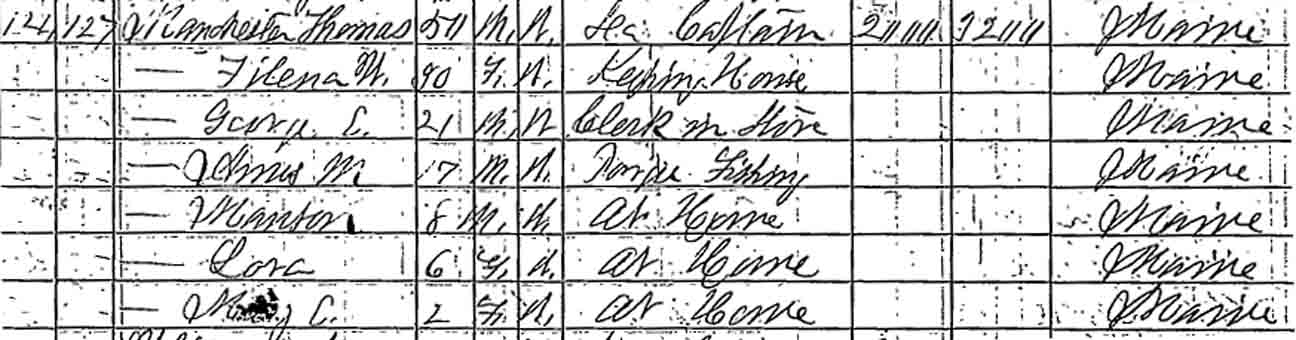 124 127 Manchester Thomas M. W. Sea Captain Maine
— Filena W. 40 F. W. Keeping House Maine
— George C. 21 M. W Clerk in Store Maine
— M 17 M. W. Fishing Maine
— Manton 8 M. W. At Home Maine
— Cora 6 F. W. At Home Maine
— C. 2 F. W. At Home Maine